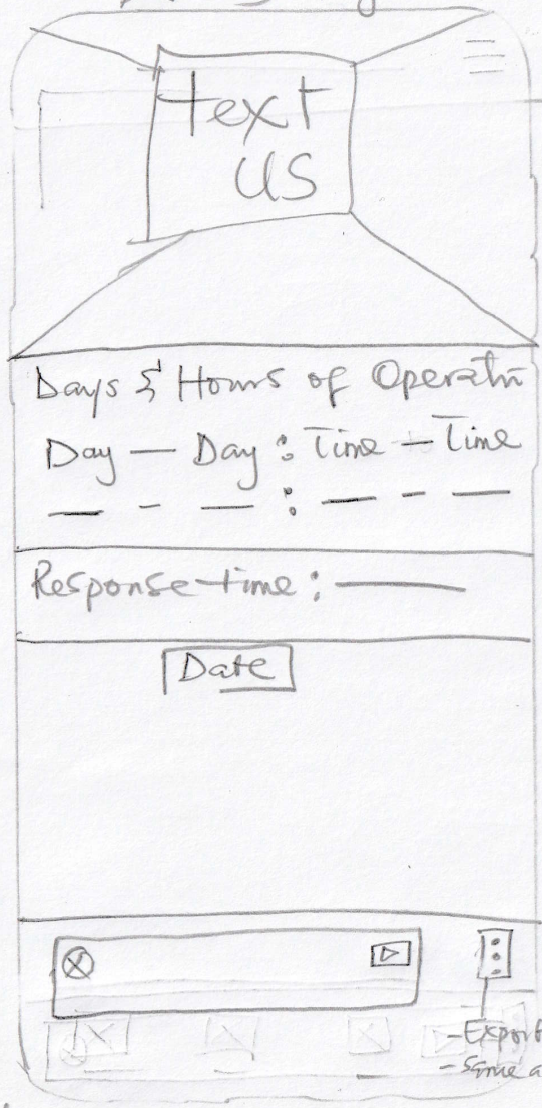 text
us
Days & Hours of Operatn
Day — Day : Time — Time
Response time :
Date
- Export
- Same a